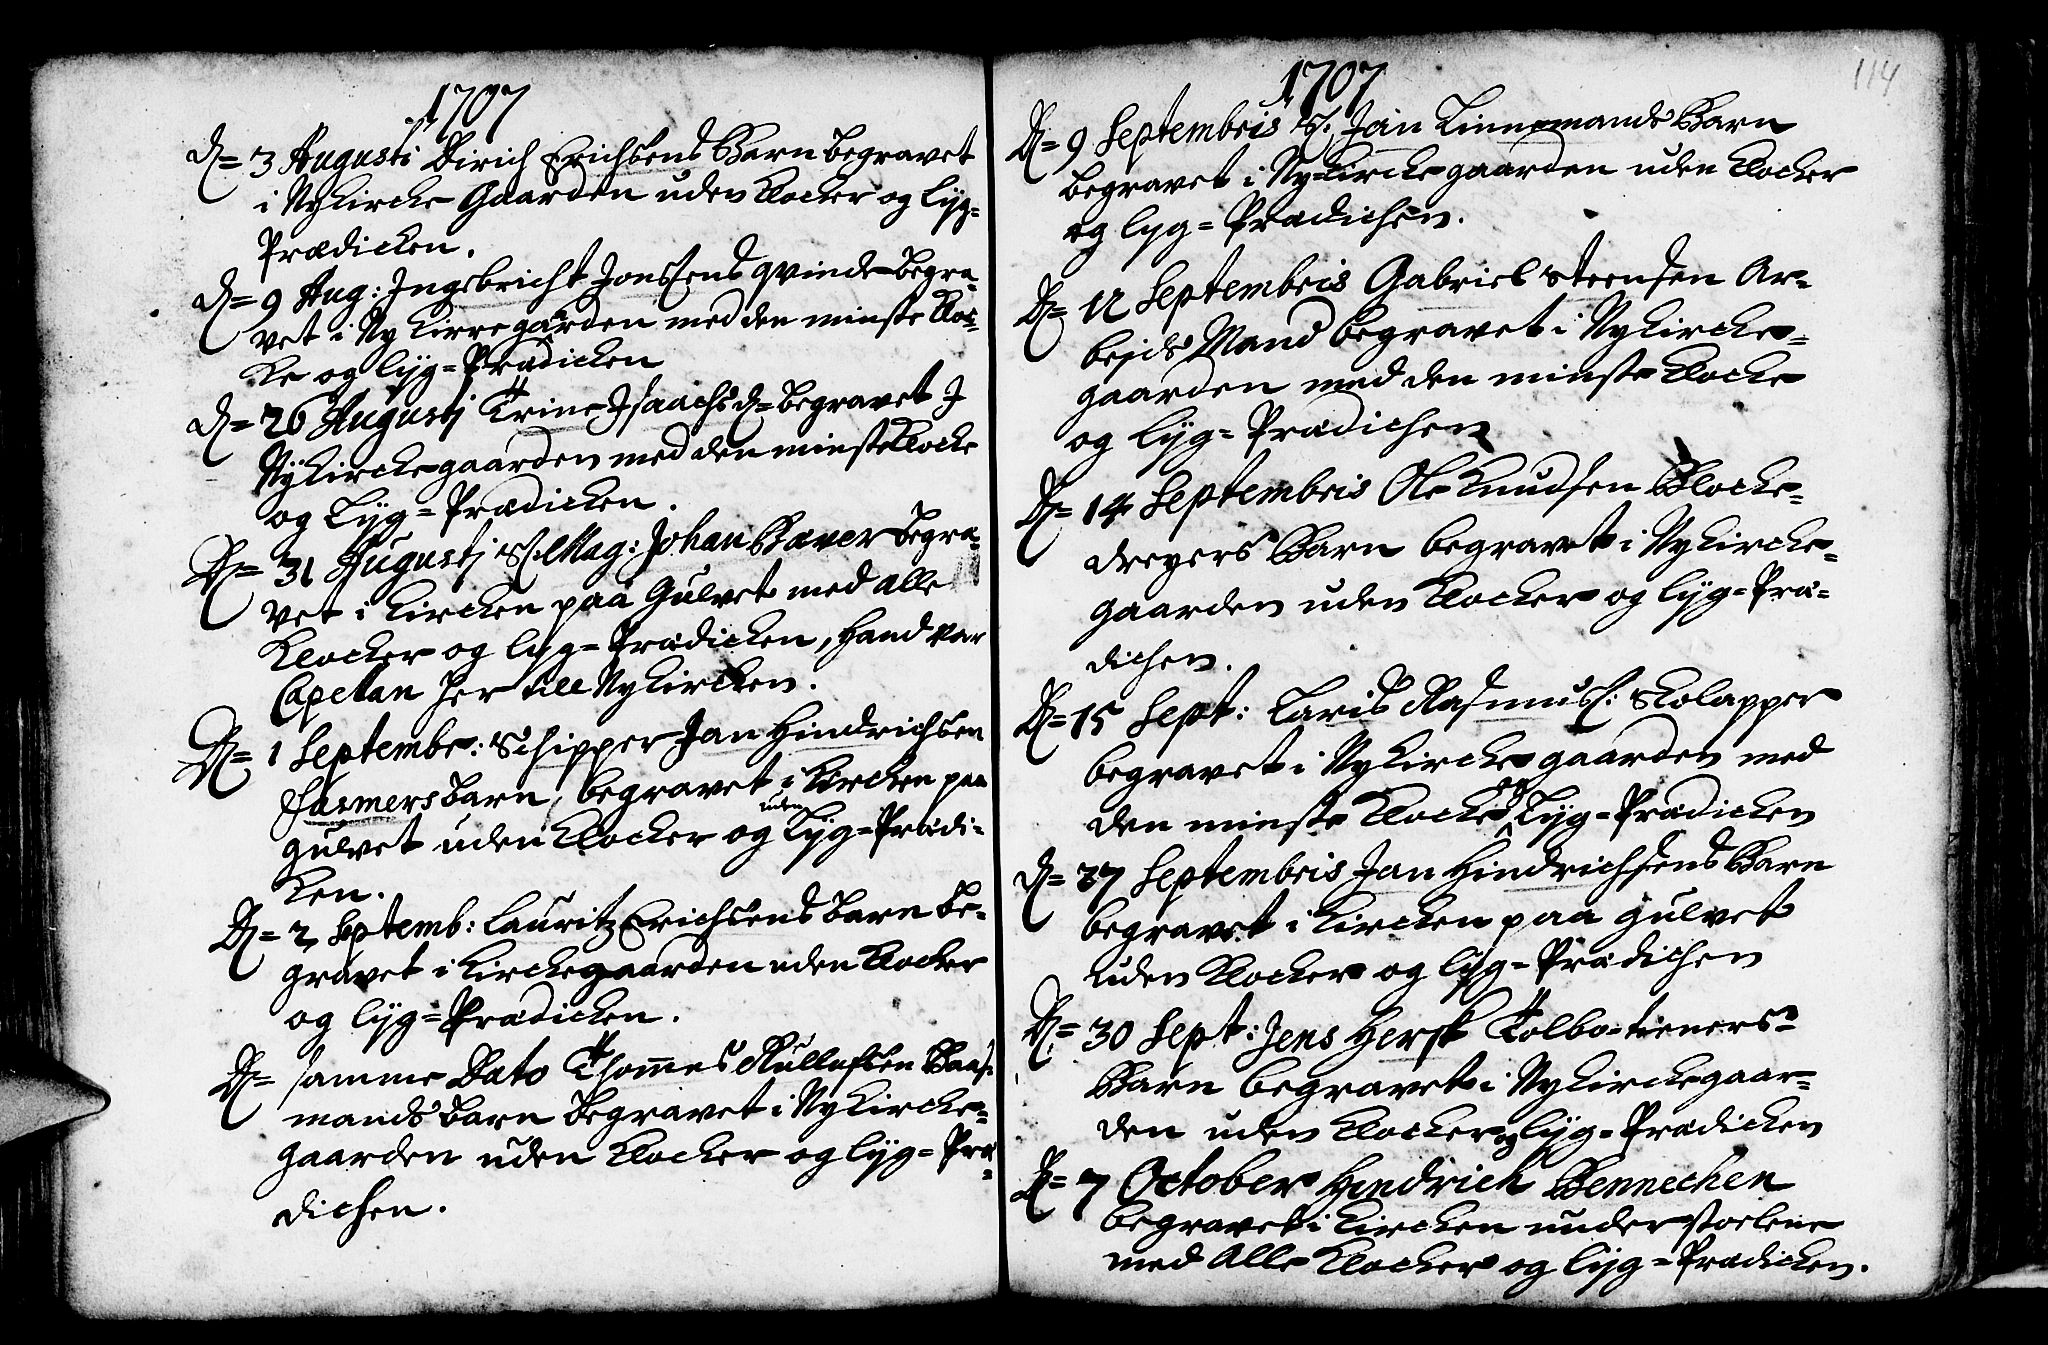 1707
D= 3 Augusti Dirich Erichsens Barn begravet
i Nykircke Gaarden uden Klocker og lyg=
Prædicken.
D= 9 Aug: Ingebricht Jonssens qvinde begra=
vet i Nykirregaarden med den minste Kloc=
ke og lyg=Prædicken
D= 26 Augustj Trine Isaachs d= begravet I
Nÿkirckegaarden med den minste Klocke
og Lyg=Prædicken.
D= 31 Augustj S. Mag: Johan Bæver begra=
vet i Kircken paa Gulvet med alle
Klocker og lyg=Prædicken, hand var
Capelan her till Nykircken.
D= 1 Septembr: Schipper Jan Hindrichsen
Jasmers barn, begravet i Kircken paa
gulvet uden Klocker og uden Lyg=Prædi=
ken.
D= 2 Septemb: Lauritz Erichsens barn be=
gravet i Kirckegaarden uden Klocker
og lyg=Prædicken.
D= samme Dato Thommes Rullufsen Baas=
mands barn begravet i Nykircke=
gaarden uden Klocker og lyg=Præ=
dichen.
114
1707
D= 9 Septembris S. Jan Linnemands Barn
begravet i Nykirckegaarden uden Klocker
og lyg=Prædichen.
D= 12 Septembris Gabriel Steensen Ar=
bejds Mand begravet i Nykircke=
gaarden med den minste Klocke
og lÿg=Prædichen
D= 14 Septembris Ole Knudsen Blocke=
dreyers Barn begravet i Nykircke=
gaarden uden Klocker og lyg=Præ=
dichen.
D= 15 Sept: Laris Rasmuss: Skolapper
begravet i Nykirckegaarden med
den minste Klocke og Lyg=Prædicken
D= 27 Septembris Jan Hindrichsens Barn
begravet i Kircken paa gulvet
uden Klocker og lyg=Prædichen
D= 30 Sept: Jens Hersk Tolbo=tieners
Barn begravet i Nykirckegaar=
den uden Klocker og lyg=Prædicken
D= 7 October Hendrich Bennechen
begravet i Kircken under stoelene
med Alle Klocker og lyg=Prædicken.